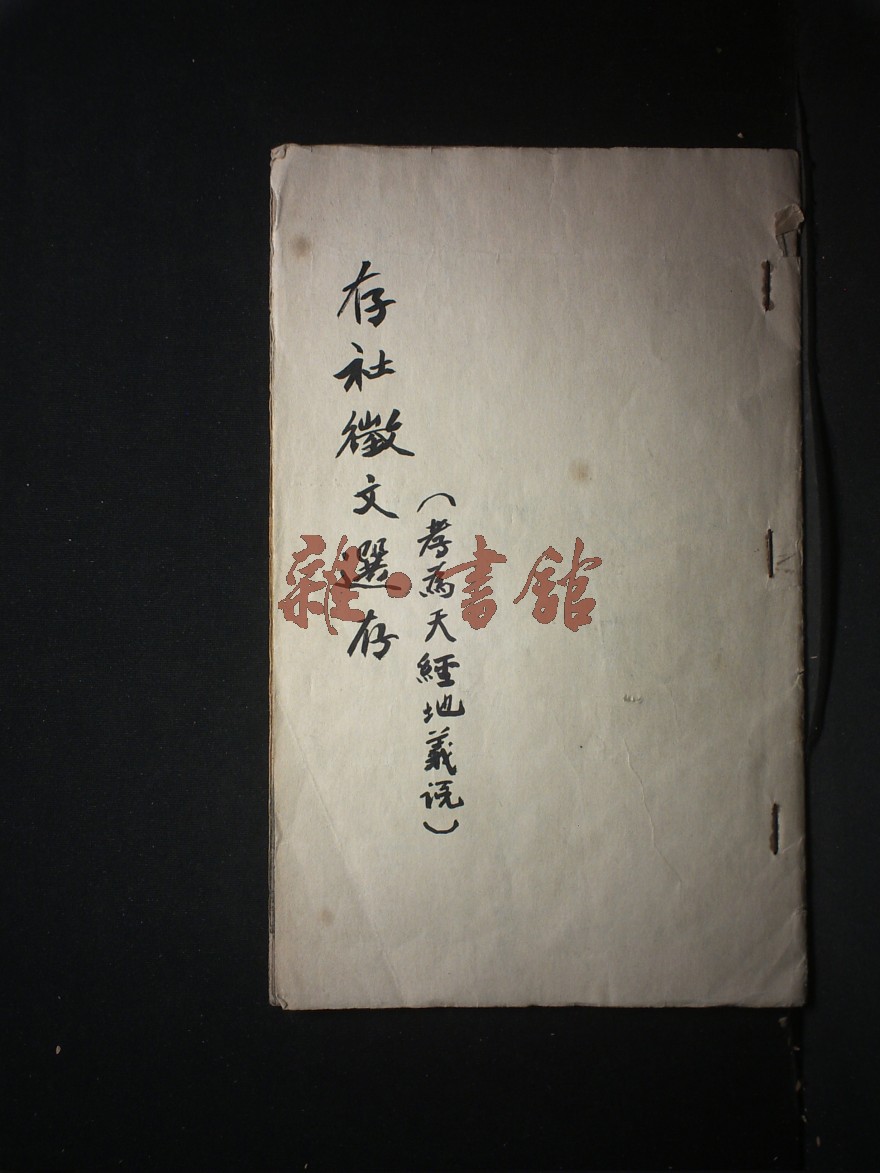 存社徵文選存
（孝為天經地義說）
雜·書館